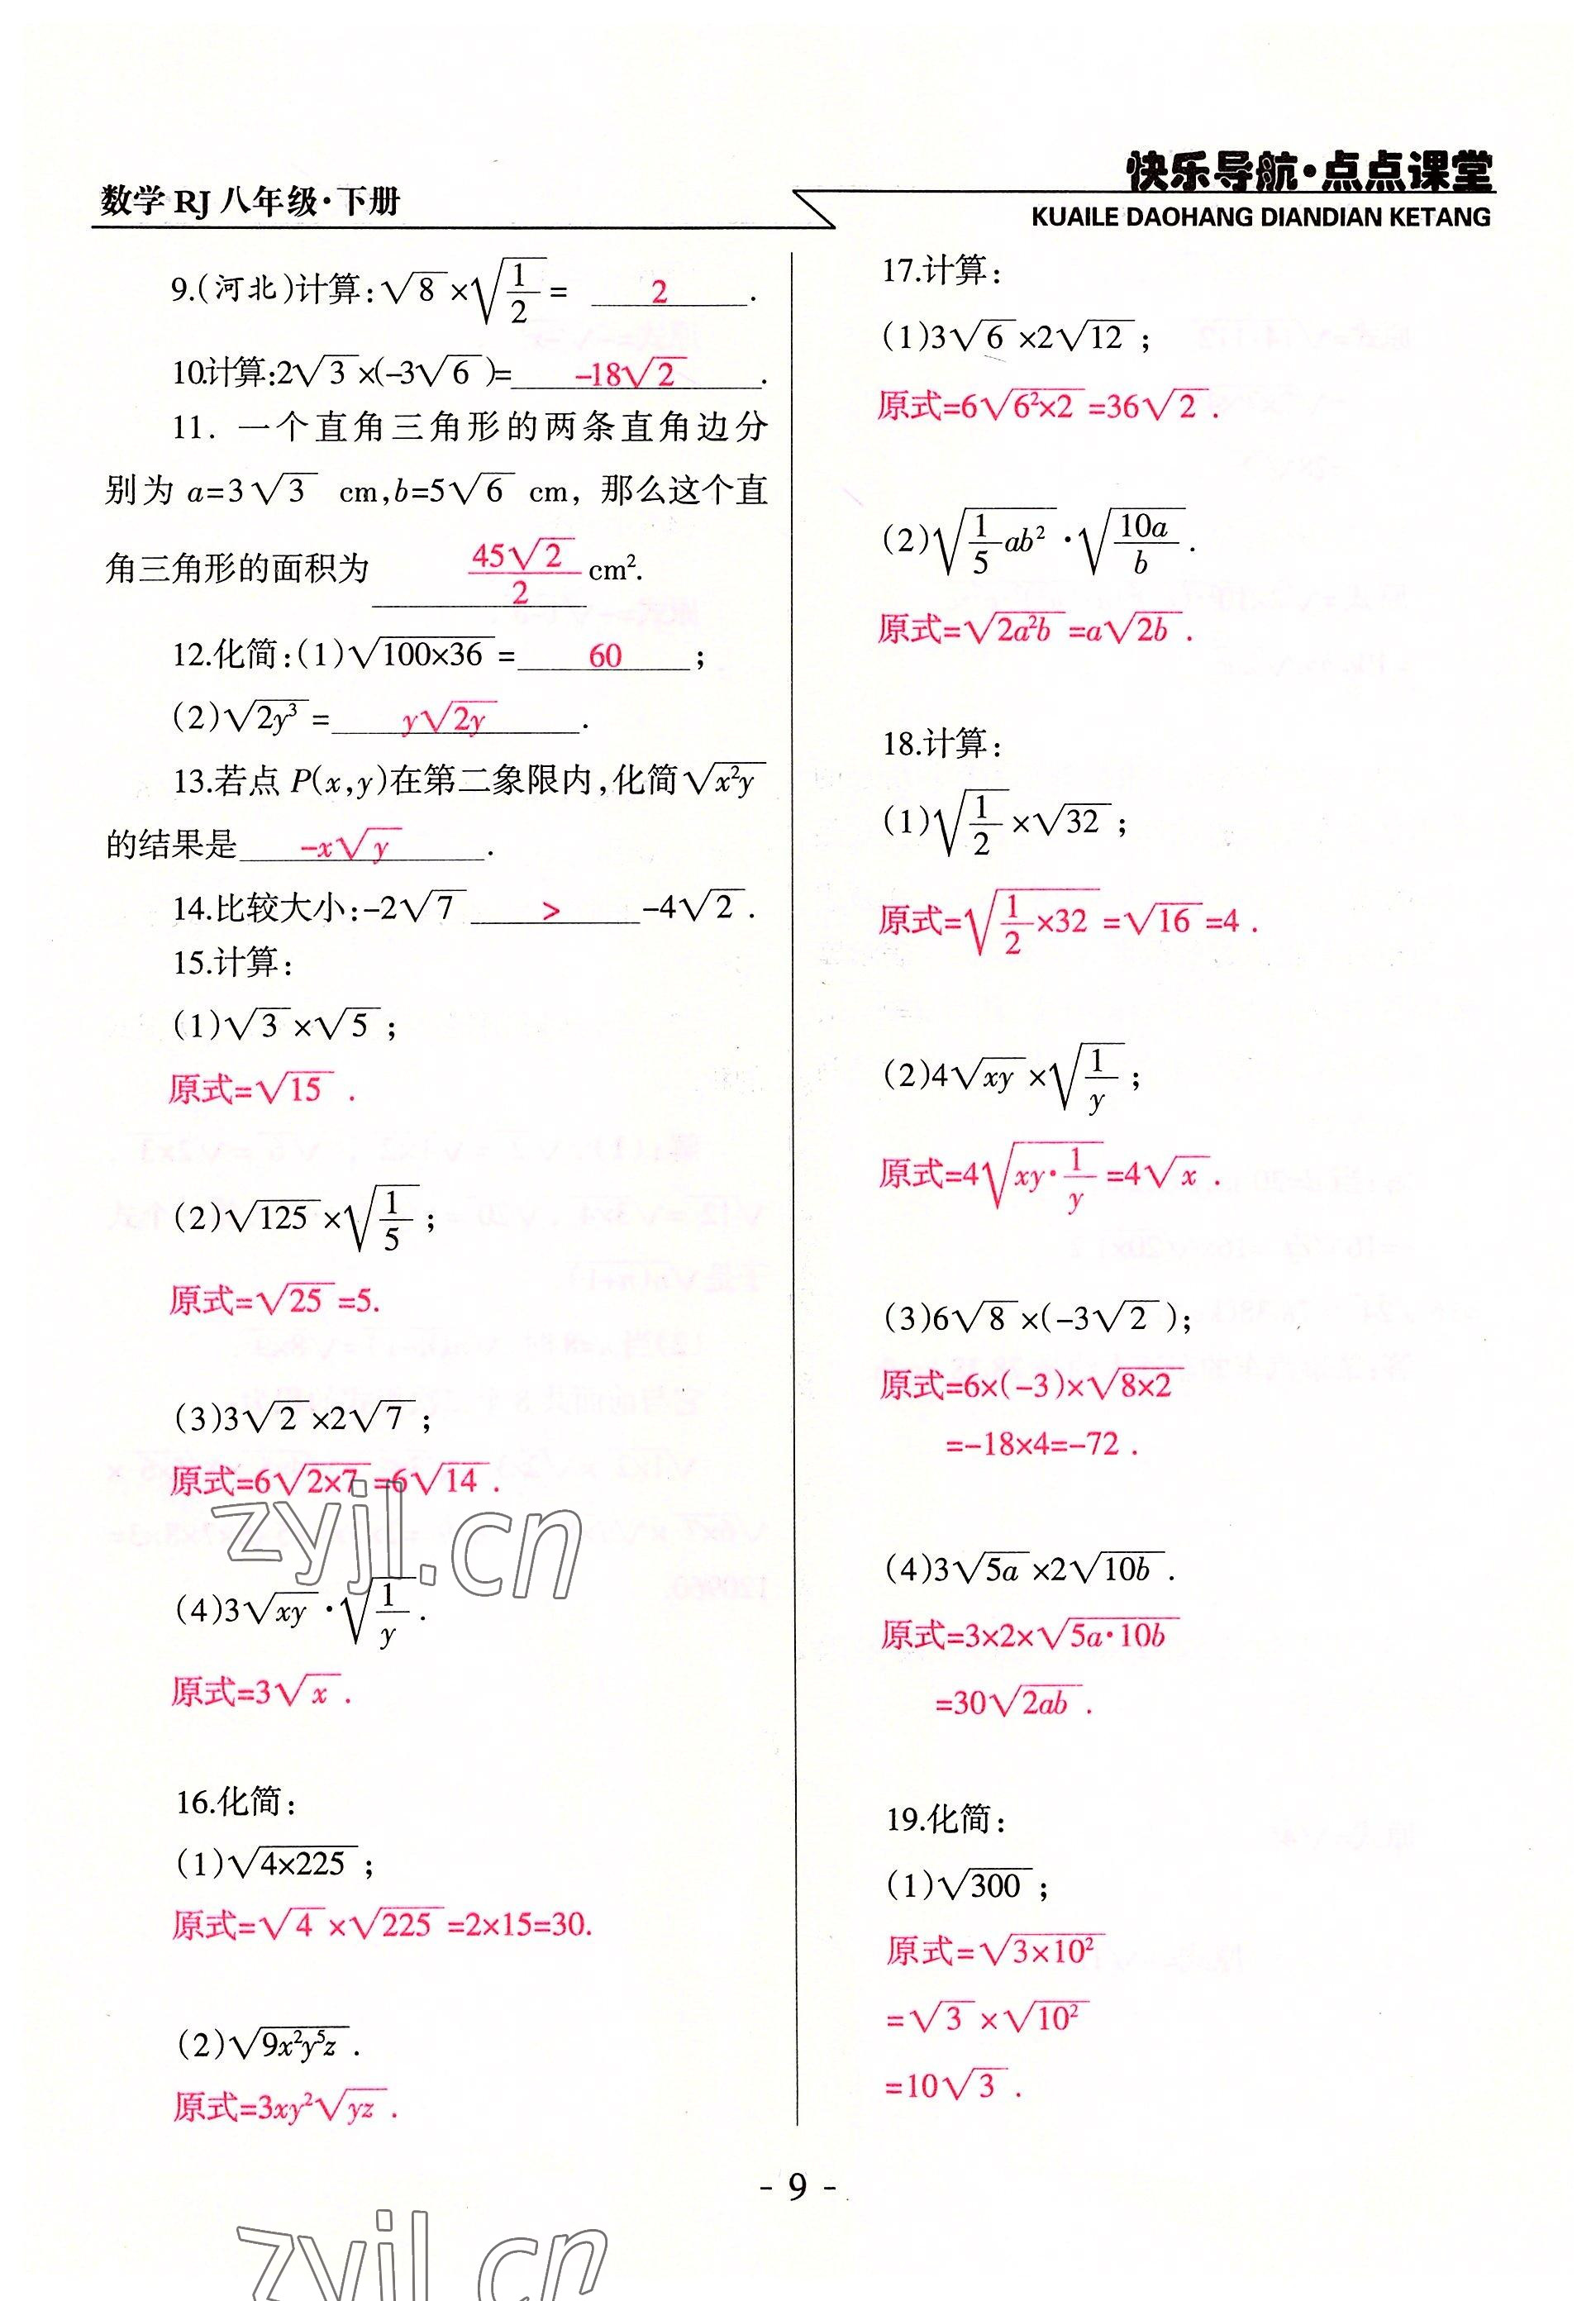 数学 RJ 八年级·下册
快乐导航·点点课堂
KUAILE DAOHANG DIANDIAN KETANG
9.(河北)计算:√8 ×√(1/2) = 2 .
10.计算:2√3 ×(-3√6 )= -18√2 .
11. 一个直角三角形的两条直角边分
别为 a=3√3 cm,b=5√6 cm, 那么这个直
角三角形的面积为 45√2/2 cm².
12.化简:(1)√(100×36) = 60 ;
(2)√(2y³) = y√(2y) .
13.若点 P(x,y)在第二象限内,化简√(x²y)
的结果是 -x√y .
14.比较大小:-2√7 > -4√2 .
15.计算:
(1)√3 ×√5 ;
原式=√15 .
(2)√125 ×√(1/5) ;
原式=√25 =5.
(3)3√2 ×2√7 ;
原式=6√(2×7) =6√14 .
zyjl.cn
(4)3√(xy) ·√(1/y) .
原式=3√x .
16.化简:
(1)√(4×225) ;
原式=√4 ×√225 =2×15=30.
(2)√(9x²y⁵z) .
原式=3xy²√(yz) .
17.计算:
(1)3√6 ×2√12 ;
原式=6√(6²×2) =36√2 .
(2)√(1/5 ab²) ·√(10a/b) .
原式=√(2a²b) =a√(2b) .
18.计算:
(1)√(1/2) ×√32 ;
原式=√(1/2 ×32) =√16 =4 .
(2)4√(xy) ×√(1/y) ;
原式=4√(xy·1/y) =4√x .
(3)6√8 ×(-3√2 );
原式=6×(-3)×√(8×2)
=-18×4=-72 .
(4)3√(5a) ×2√(10b) .
原式=3×2×√(5a·10b)
=30√(2ab) .
19.化简:
(1)√300 ;
原式=√(3×10²)
=√3 ×√(10²)
=10√3 .
- 9 -
zyjl.cn